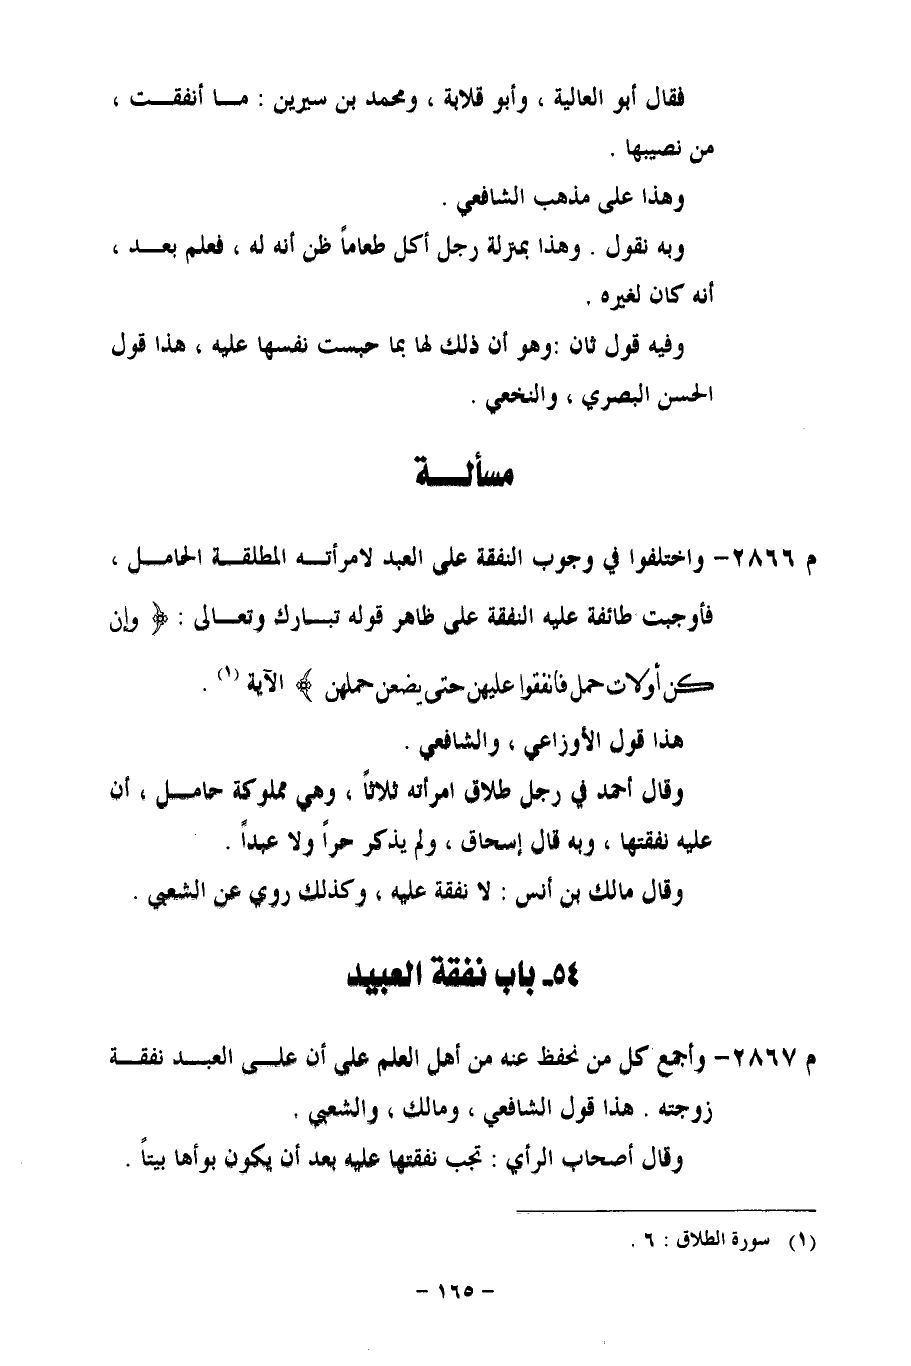 فقال أبو العالية ، وأبو قلابة ، ومحمد بن سيرين : مـا أنفقـت ،
من نصيبها .
وهذا على مذهب الشافعي .
وبه نقول . وهذا بمنزلة رجل أكل طعاماً ظن أنه له ، فعلم بعـد ،
أنه كان لغيره .
وفيه قول ثان :وهو أن ذلك لها بما حبست نفسها عليه ، هذا قول
الحسن البصري ، والنخعي .
مسألـة
م ٢٨٦٦ – واختلفوا في وجوب النفقة على العبد لامرأتـه المطلقـة الحامـل ،
فأوجبت طائفة عليه النفقة على ظاهر قوله تبـارك وتعـالى : ﴿ وإن
كن أولات حمل فأنفقوا عليهن حتى يضعن حملهن ﴾ الآية (١) .
هذا قول الأوزاعي ، والشافعي .
وقال أحمد في رجل طلاق امرأته ثلاثاً ، وهي مملوكة حامـل ، أن
عليه نفقتها ، وبه قال إسحاق ، ولم يذكر حراً ولا عبداً .
وقال مالك بن أنس : لا نفقة عليه ، وكذلك روي عن الشعبي .
٥٤ـ باب نفقة العبيد
م ٢٨٦٧ – وأجمع كل من نحفظ عنه من أهل العلم على أن علـى العبـد نفقـة
زوجته . هذا قول الشافعي ، ومالك ، والشعبي .
وقال أصحاب الرأي : تجب نفقتها عليه بعد أن يكون بوأها بيتاً .
(١) سورة الطلاق : ٦ .
– ١٦٥ –